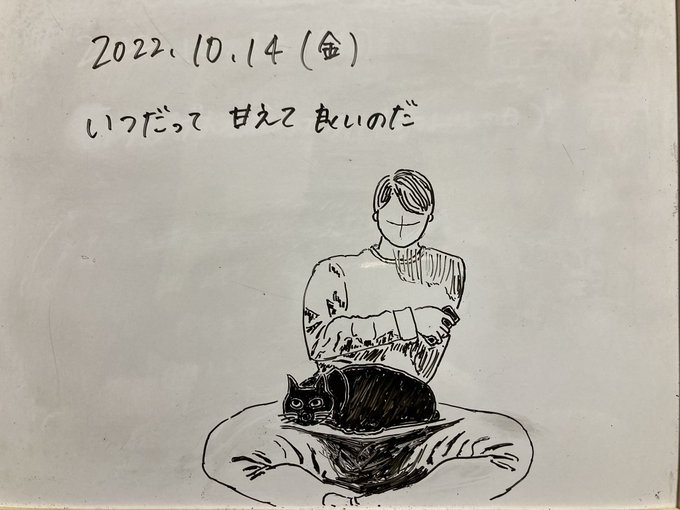 2022.10.14(金)
いつだって 甘えて 良いのだ